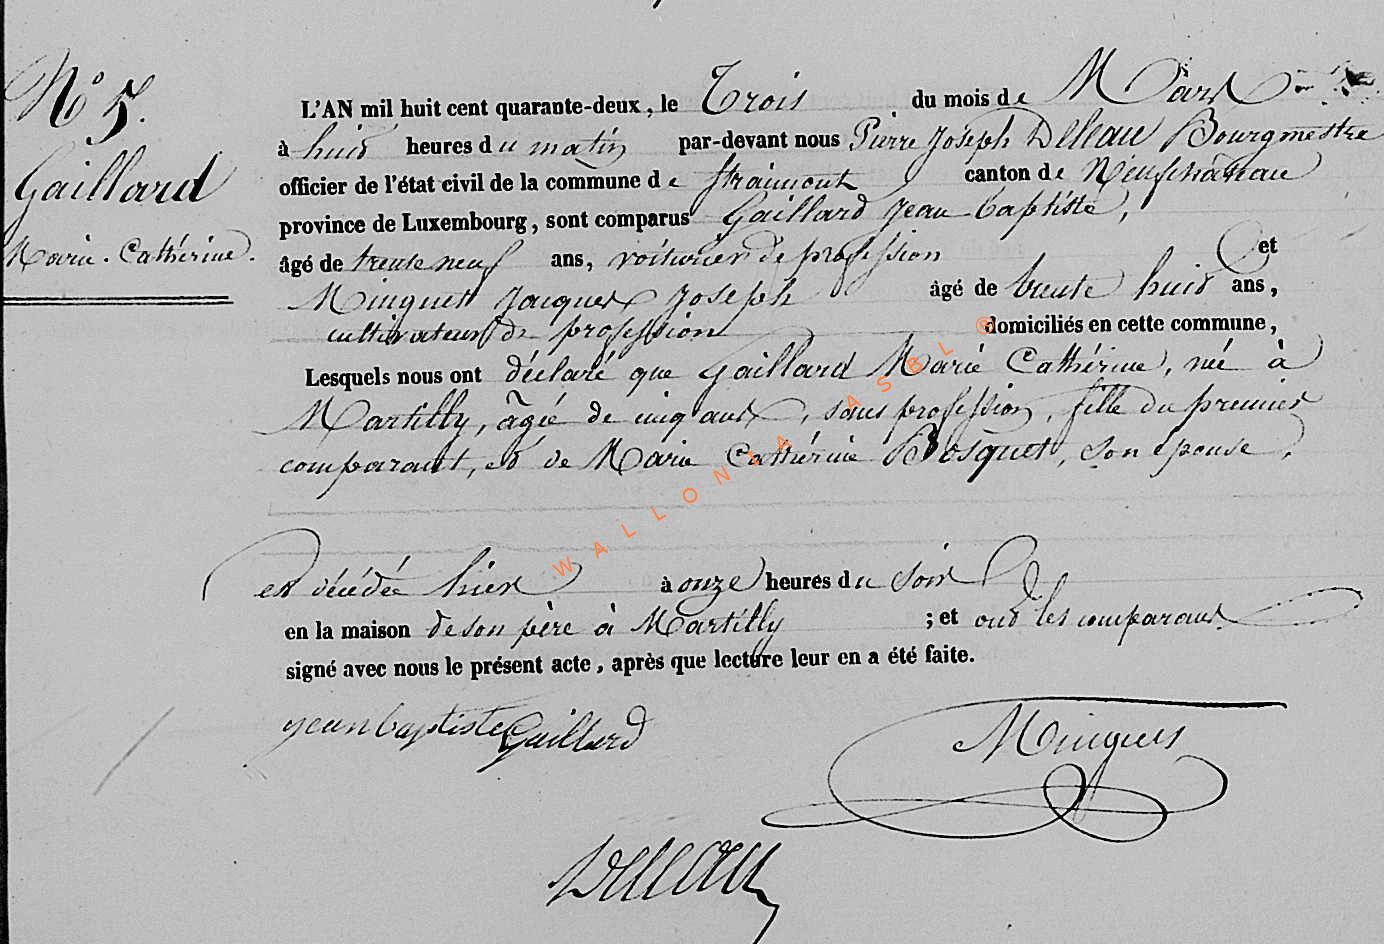 N° 5.
Gaillard
Marie-Cathérine.
L'AN mil huit cent quarante-deux, le Trois du mois de Mars
à huit heures du matin par-devant nous Pierre Joseph Delleau Bourgmestre
officier de l'état civil de la commune de Straimont canton de Neufchâteau
province de Luxembourg, sont comparus Gaillard Jean baptiste,
âgé de trente neuf ans, voiturier de profession et
Minguet Jacques Joseph âgé de trente huit ans,
cultivateur de profession domiciliés en cette commune,
Lesquels nous ont déclaré que Gaillard Marie Cathérine, né à
Martilly, âgée de cinq ans, sans profession, fille du premier
comparant, et de Marie Cathérine Bosquet, son épouse,
est décédée hier à onze heures du soir
en la maison de son père à Martilly ; et ont les comparans
signé avec nous le présent acte, après que lecture leur en a été faite.
jean baptiste Gaillard
Minguet
Delleau
WALLONIA ASBL ®